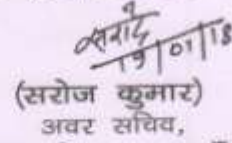 19/01/18
(सरोज कुमार)
अवर सचिव,